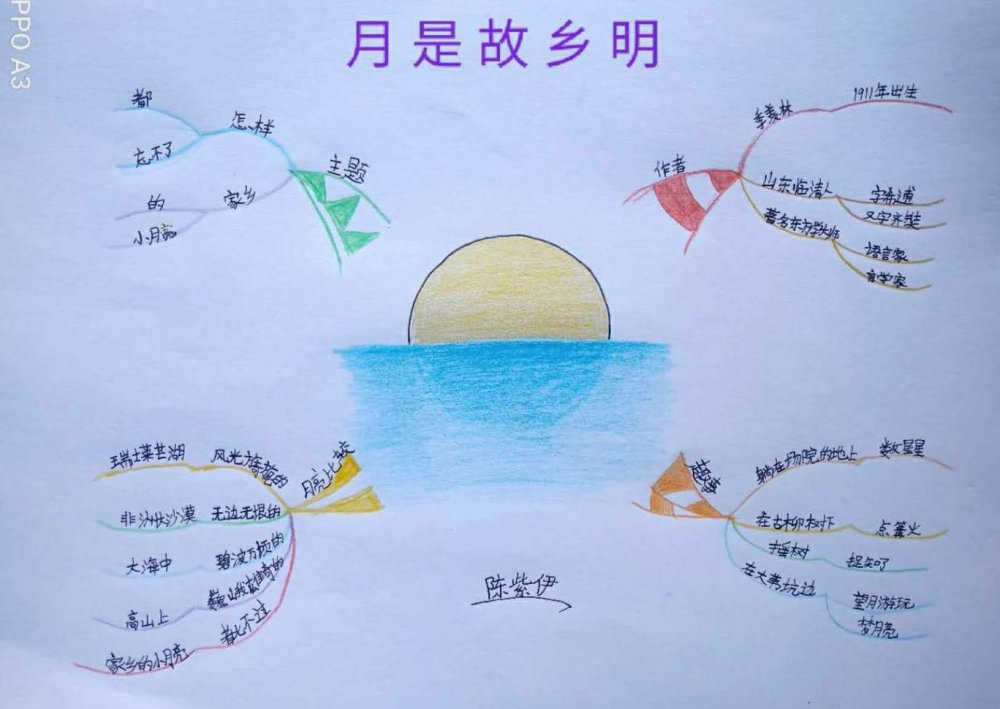 PPO A3
月是故乡明
主题
怎样
都
忘不了
家乡
的
小月亮
作者
季羡林
1911年出生
山东临清人
字希逋
又字齐奘
著名东方学大师
语言家
月亮比较
风光旖旎的
瑞士莱芒湖
无边无垠的
非洲大沙漠
碧波万顷的
大海中
巍峨雄奇的
高山上
都比不过
家乡的小月亮
趣事
躺在场院的地上
数星星
在古柳树下
点篝火
摇树
捉知了
在大苇坑边
望月游玩
梦月亮
陈紫伊